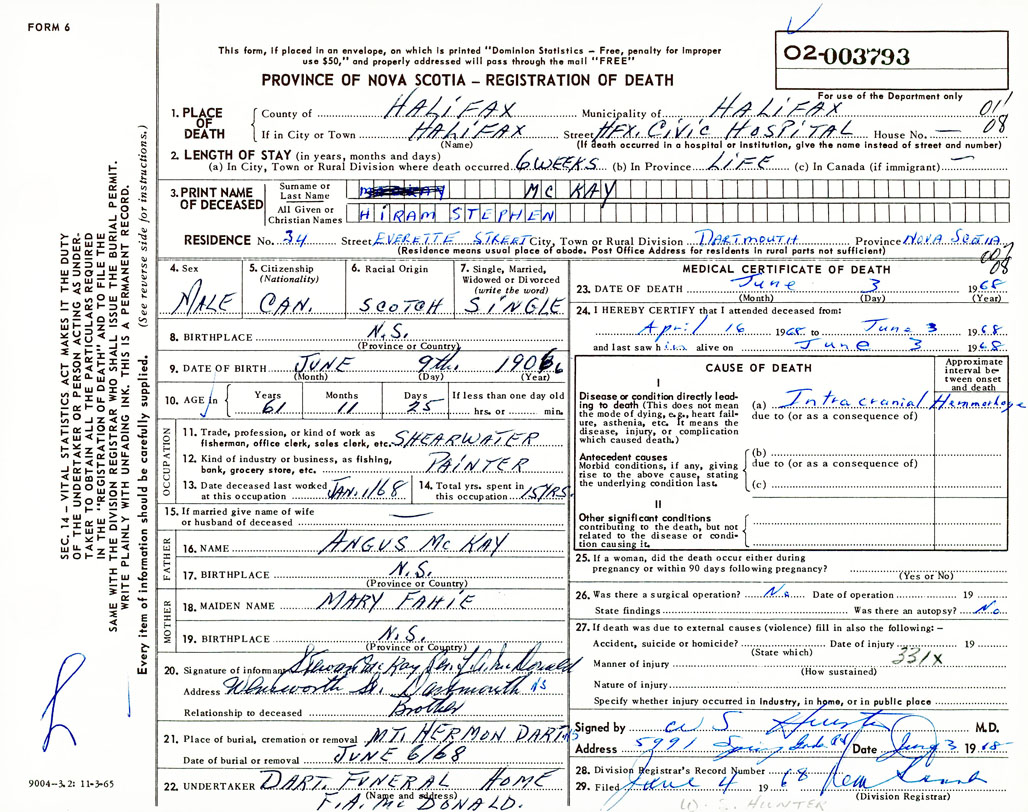 FORM 6
This form, if placed in an envelope, on which is printed "Dominion Statistics – Free, penalty for improper
use $50," and properly addressed will pass through the mail "FREE"
PROVINCE OF NOVA SCOTIA – REGISTRATION OF DEATH
02-003793
For use of the Department only
01'
08
1. PLACE OF DEATH
County of HALIFAX Municipality of HALIFAX
If in City or Town HALIFAX Street HFX. CIVIC HOSPITAL House No. —
(Name) (If death occurred in a hospital or institution, give the name instead of street and number)
2. LENGTH OF STAY (in years, months and days)
(a) In City, Town or Rural Division where death occurred 6 WEEKS (b) In Province LIFE (c) In Canada (if immigrant) —
3. PRINT NAME OF DECEASED
Surname or Last Name MC KAY
All Given or Christian Names HIRAM STEPHEN
RESIDENCE No. 34 Street EVERETTE STREET City, Town or Rural Division DARTMOUTH Province NOVA SCOTIA
(Residence means usual place of abode. Post Office Address for residents in rural parts not sufficient)
08
4. Sex
MALE
5. Citizenship
(Nationality)
CAN.
6. Racial Origin
SCOTCH
7. Single, Married,
Widowed or Divorced
(write the word)
SINGLE
8. BIRTHPLACE N.S.
(Province or Country)
9. DATE OF BIRTH JUNE 9th. 1906
(Month) (Day) (Year)
10. AGE in
Years Months Days If less than one day old
61 11 25 hrs. or min.
OCCUPATION
11. Trade, profession, or kind of work as
fisherman, office clerk, sales clerk, etc. SHEARWATER
12. Kind of industry or business, as fishing,
bank, grocery store, etc. PAINTER
13. Date deceased last worked
at this occupation JAN. 1/68
14. Total yrs. spent in
this occupation 15 YRS.
15. If married give name of wife
or husband of deceased —
FATHER
16. NAME ANGUS MC KAY
17. BIRTHPLACE N.S.
(Province or Country)
MOTHER
18. MAIDEN NAME MARY FAHIE
19. BIRTHPLACE N.S.
(Province or Country)
20. Signature of informant McKay
Address St. Dartmouth NS
Relationship to deceased Brother
21. Place of burial, cremation or removal MT. HERMON DART NS
Date of burial or removal JUNE 6/68
22. UNDERTAKER DART FUNERAL HOME
(Name and address)
F.A. MC DONALD.
MEDICAL CERTIFICATE OF DEATH
23. DATE OF DEATH June 3 1968
(Month) (Day) (Year)
24. I HEREBY CERTIFY that I attended deceased from:
April 16 1968 to June 3 1968
and last saw him alive on June 3 1968
CAUSE OF DEATH
Approximate
interval be-
tween onset
and death
I
Disease or condition directly lead-
ing to death (This does not mean
the mode of dying, e.g., heart fail-
ure, asthenia, etc. It means the
disease, injury, or complication
which caused death.)
(a) Intracranial Hemmorhage
due to (or as a consequence of)
Antecedent causes
Morbid conditions, if any, giving
rise to the above cause, stating
the underlying condition last.
(b)
due to (or as a consequence of)
(c)
II
Other significant conditions
contributing to the death, but not
related to the disease or condi-
tion causing it.
25. If a woman, did the death occur either during
pregnancy or within 90 days following pregnancy?
(Yes or No)
26. Was there a surgical operation? No Date of operation 19
State findings Was there an autopsy? No
27. If death was due to external causes (violence) fill in also the following: –
Accident, suicide or homicide? Date of injury 19
(State which)
331X
Manner of injury
(How sustained)
Nature of injury
Specify whether injury occurred in industry, in home, or in public place
Signed by W S M.D.
Address 5991 Spring Garden Rd Date June 3 1968
28. Division Registrar's Record Number
29. Filed June 4 1968
(Division Registrar)
W. S. HUNTER
SEC. 14 – VITAL STATISTICS ACT MAKES IT THE DUTY
OF THE UNDERTAKER OR PERSON ACTING AS UNDER-
TAKER TO OBTAIN ALL THE PARTICULARS REQUIRED
IN THE "REGISTRATION OF DEATH" AND TO FILE THE
SAME WITH THE DIVISION REGISTRAR WHO SHALL ISSUE THE BURIAL PERMIT.
WRITE PLAINLY WITH UNFADING INK. THIS IS A PERMANENT RECORD.
Every item of information should be carefully supplied. (See reverse side for instructions.)
9004-3.2: 11-3-65